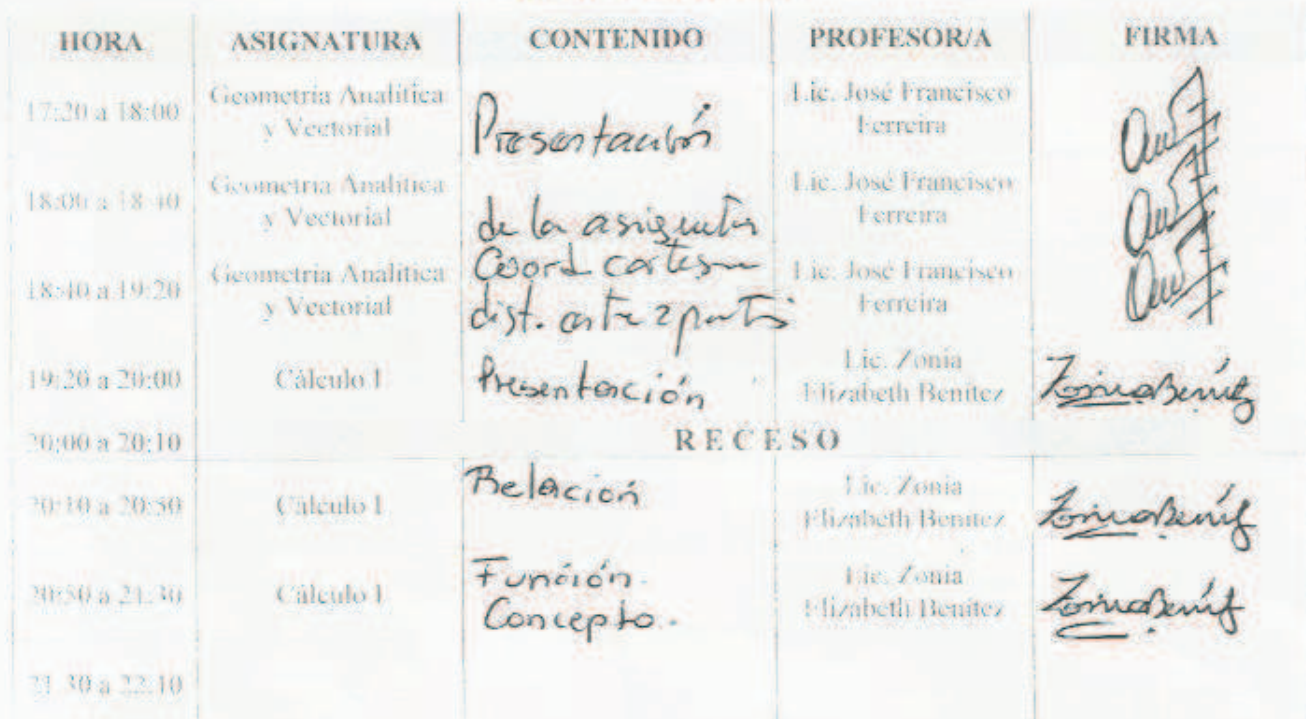 HORA ASIGNATURA CONTENIDO PROFESOR/A FIRMA
17:20 a 18:00 Geometría Analítica y Vectorial Presentación Lic. José Francisco Ferreira
18:00 a 18:40 Geometría Analítica y Vectorial de la asignatura Lic. José Francisco Ferreira
18:40 a 19:20 Geometría Analítica y Vectorial Coord. cartesiana Lic. José Francisco Ferreira
dist. entre 2 puntos
19:20 a 20:00 Cálculo I Presentación Lic. Zonia Elizabeth Benítez Zonia Benítez
20:00 a 20:10 RECESO
20:10 a 20:50 Cálculo I Relación Lic. Zonia Elizabeth Benítez Zonia Benítez
20:50 a 21:30 Cálculo I Función. Lic. Zonia Elizabeth Benítez Zonia Benítez
Concepto.
21:30 a 22:10